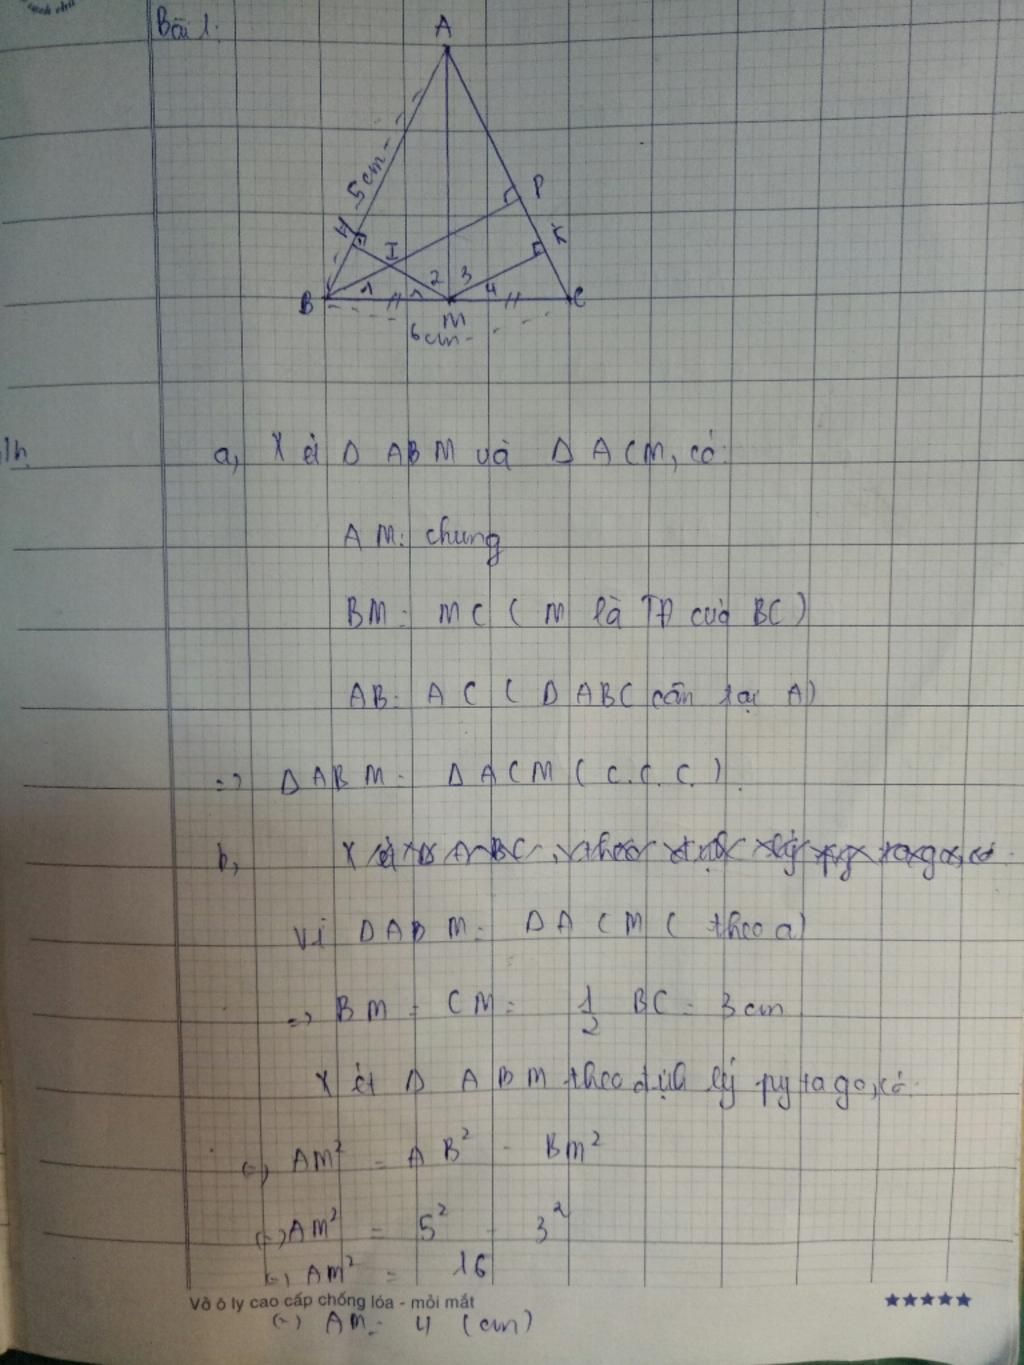 Bài 1:
A
5cm
P
H
K
I
2 3
1 1 4
B
C
M
6cm
a, Xét Δ ABM và Δ ACM, có:
AM: chung
BM = MC ( M là TĐ của BC )
AB = AC ( Δ ABC cân tại A)
=> Δ ABM = Δ ACM ( c.c.c. )
b,
Vì Δ ABM = Δ ACM ( theo a)
=> BM = CM = 1/2 BC = 3cm
Xét Δ ABM theo định lý pytago, có:
(=) AM² = AB² - BM²
(=) AM² = 5² - 3²
(=) AM² = 16
Vở ô ly cao cấp chống lóa - mỏi mắt
(=) AM = 4 (cm)